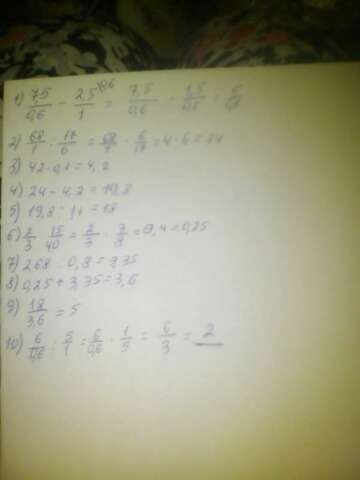 1) 7,5/0,6 - 2,5\0,6/1 = 7,5/0,6 - 1,5/0,6 = 6/0,6
2) 68/1 : 17/6 = 68/1 · 6/17 = 4·6 = 24
3) 42·0,1 = 4,2
4) 24 - 4,2 = 19,8
5) 19,8 : 1,1 = 18
6) 2/3 · 15/40 = 2/3 · 3/8 = = 0,25
7) 2,68 : 0,8 = 3,35
8) 0,25 + 3,35 = 3,6
9) 18/3,6 = 5
10) 6/0,6 : 5/1 = 6/0,6 · 1/5 = 6/3 = 2